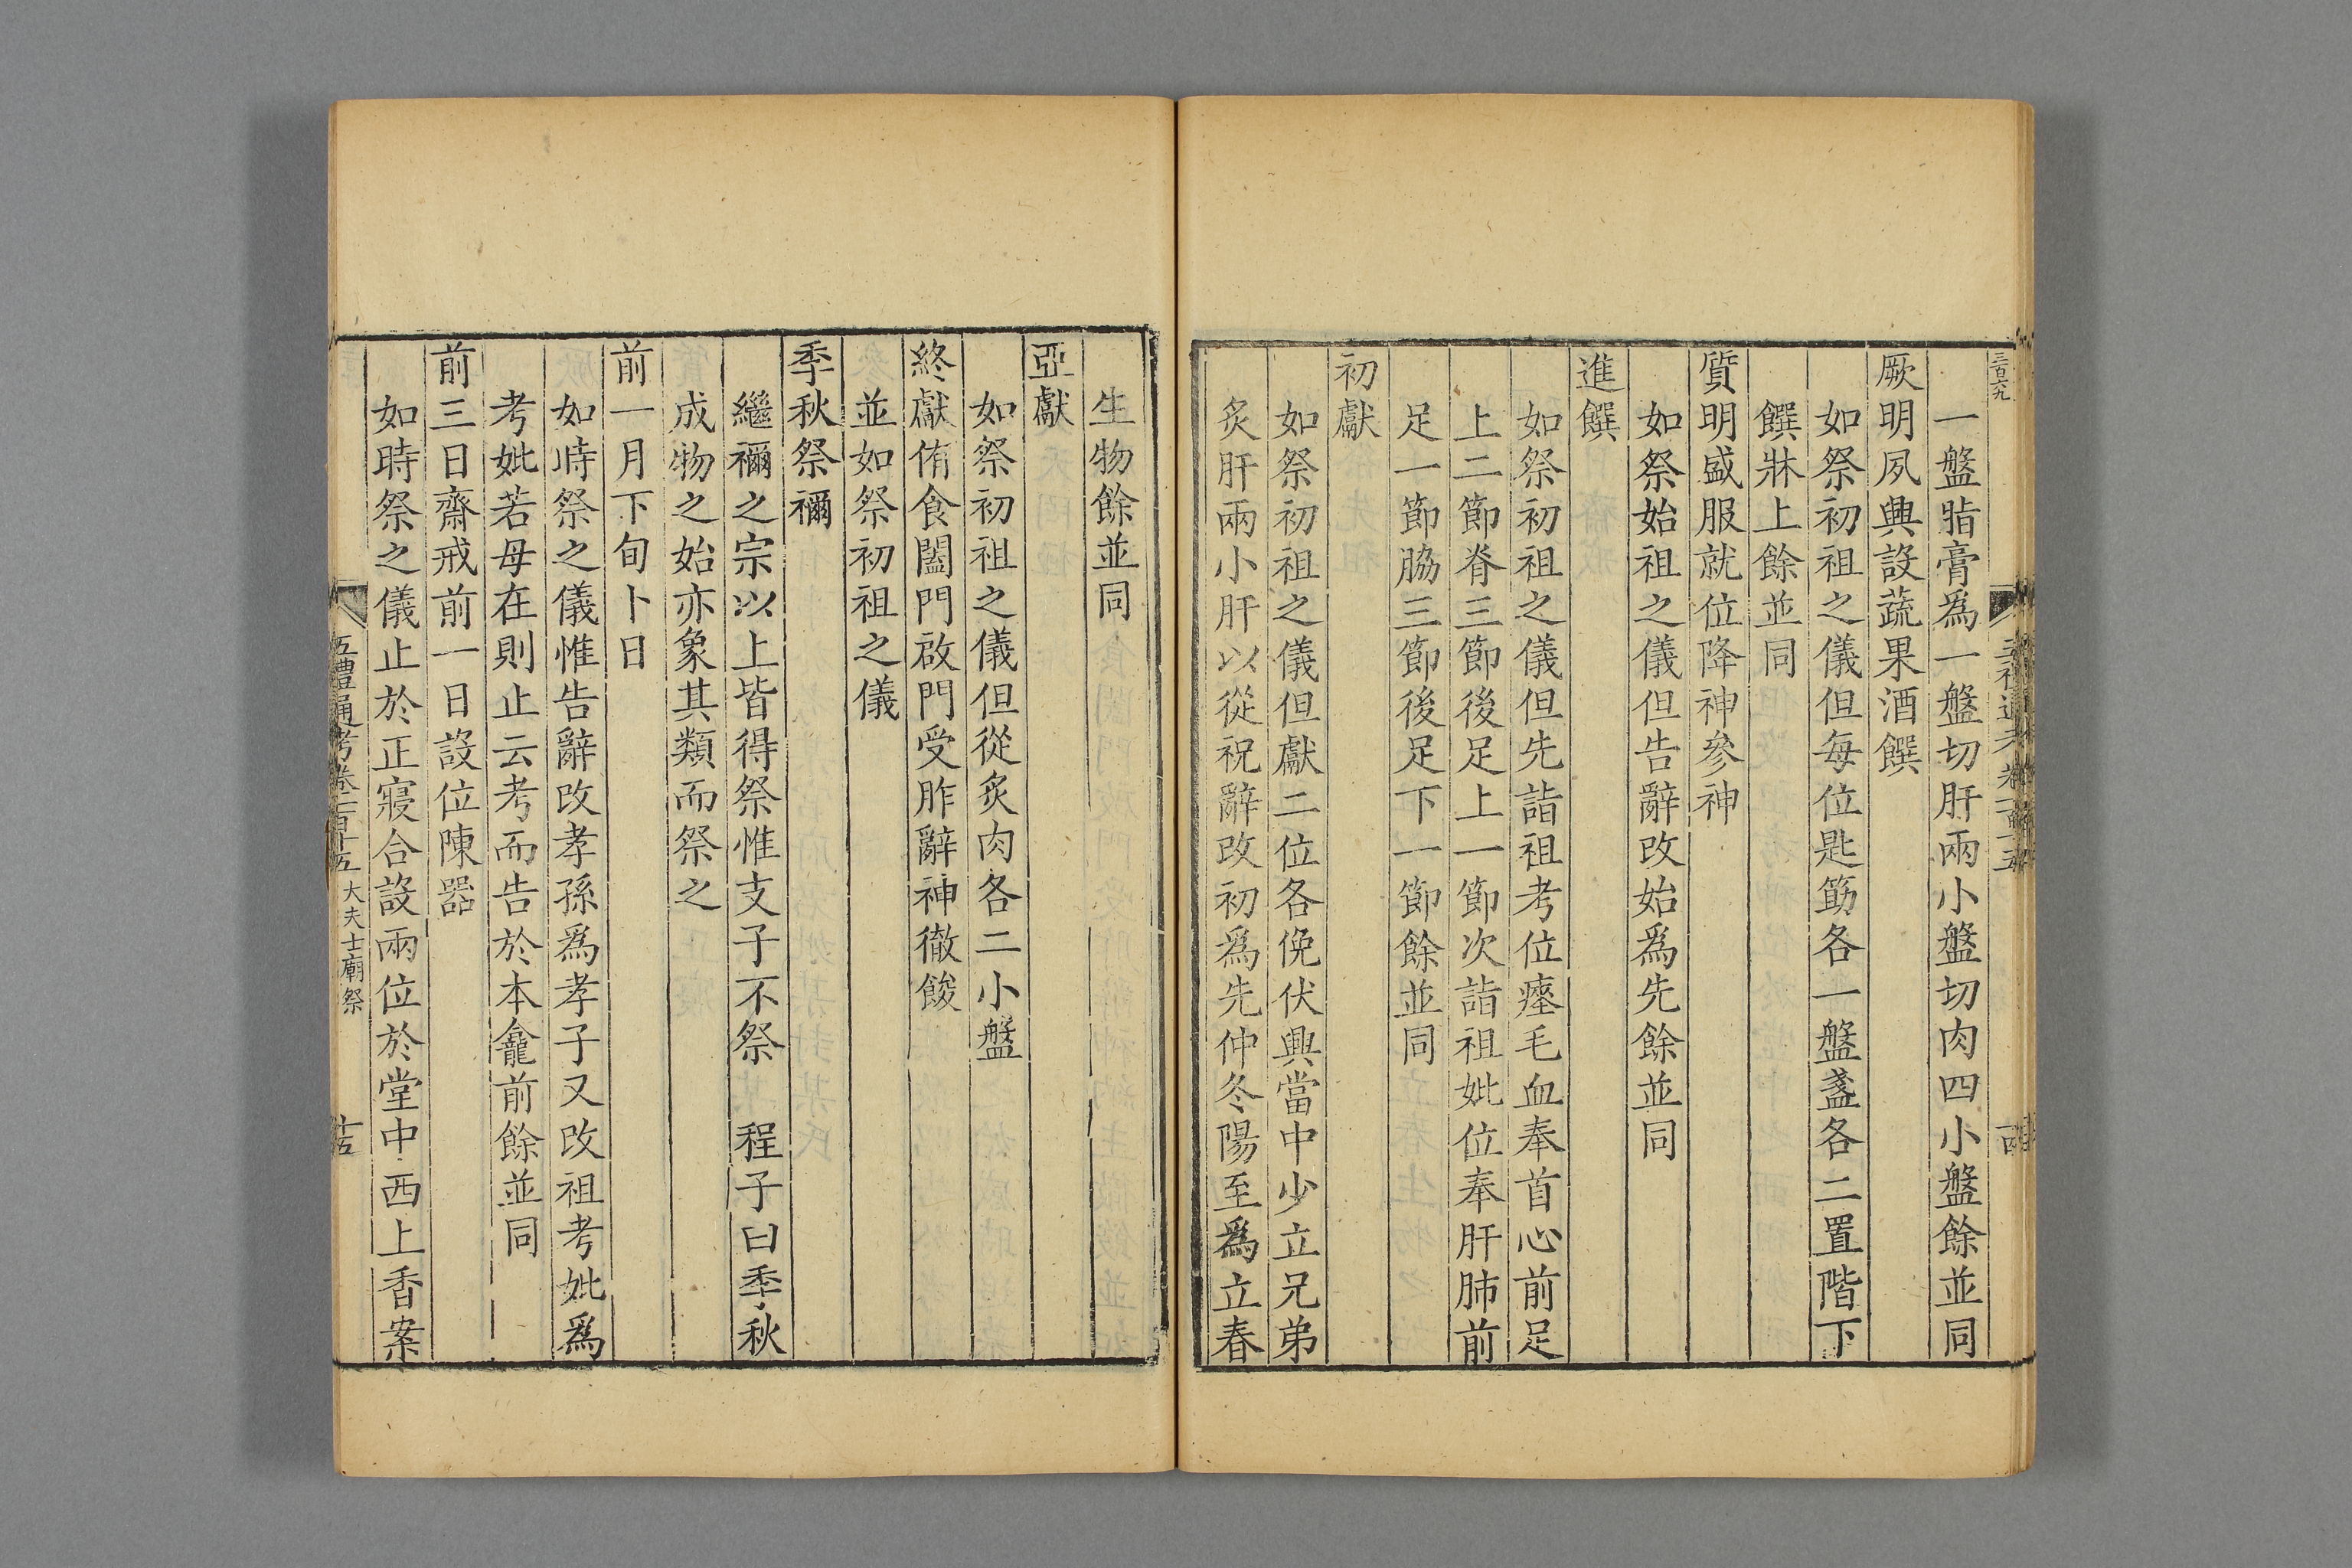 三百六九
一盤脂膏爲一盤切肝兩小盤切肉四小盤餘並同
厥明夙興設蔬果酒饌
如祭初祖之儀但每位匙筯各一盤盞各二置階下
饌牀上餘並同
質明盛服就位降神參神
如祭始祖之儀但告辭改始爲先餘並同
進饌
如祭初祖之儀但先詣祖考位瘞毛血奉首心前足
上二節脊三節後足上一節次詣祖妣位奉肝肺前
足一節脇三節後足下一節餘並同
初獻
如祭初祖之儀但獻二位各俛伏興當中少立兄弟
炙肝兩小肝以從祝辭改初爲先仲冬陽至爲立春
生物餘並同
亞獻
如祭初祖之儀但從炙肉各二小盤
終獻侑食闔門啟門受胙辭神徹餕
並如祭初祖之儀
季秋祭禰
繼禰之宗以上皆得祭惟支子不祭　程子曰季秋
成物之始亦象其類而祭之
前一月下旬卜日
如時祭之儀惟告辭改孝孫爲孝子又改祖考妣爲
考妣若母在則止云考而告於本龕前餘並同
前三日齋戒前一日設位陳器
如時祭之儀止於正寢合設兩位於堂中西上香案
五禮通考卷一百十五 大夫士廟祭
十五